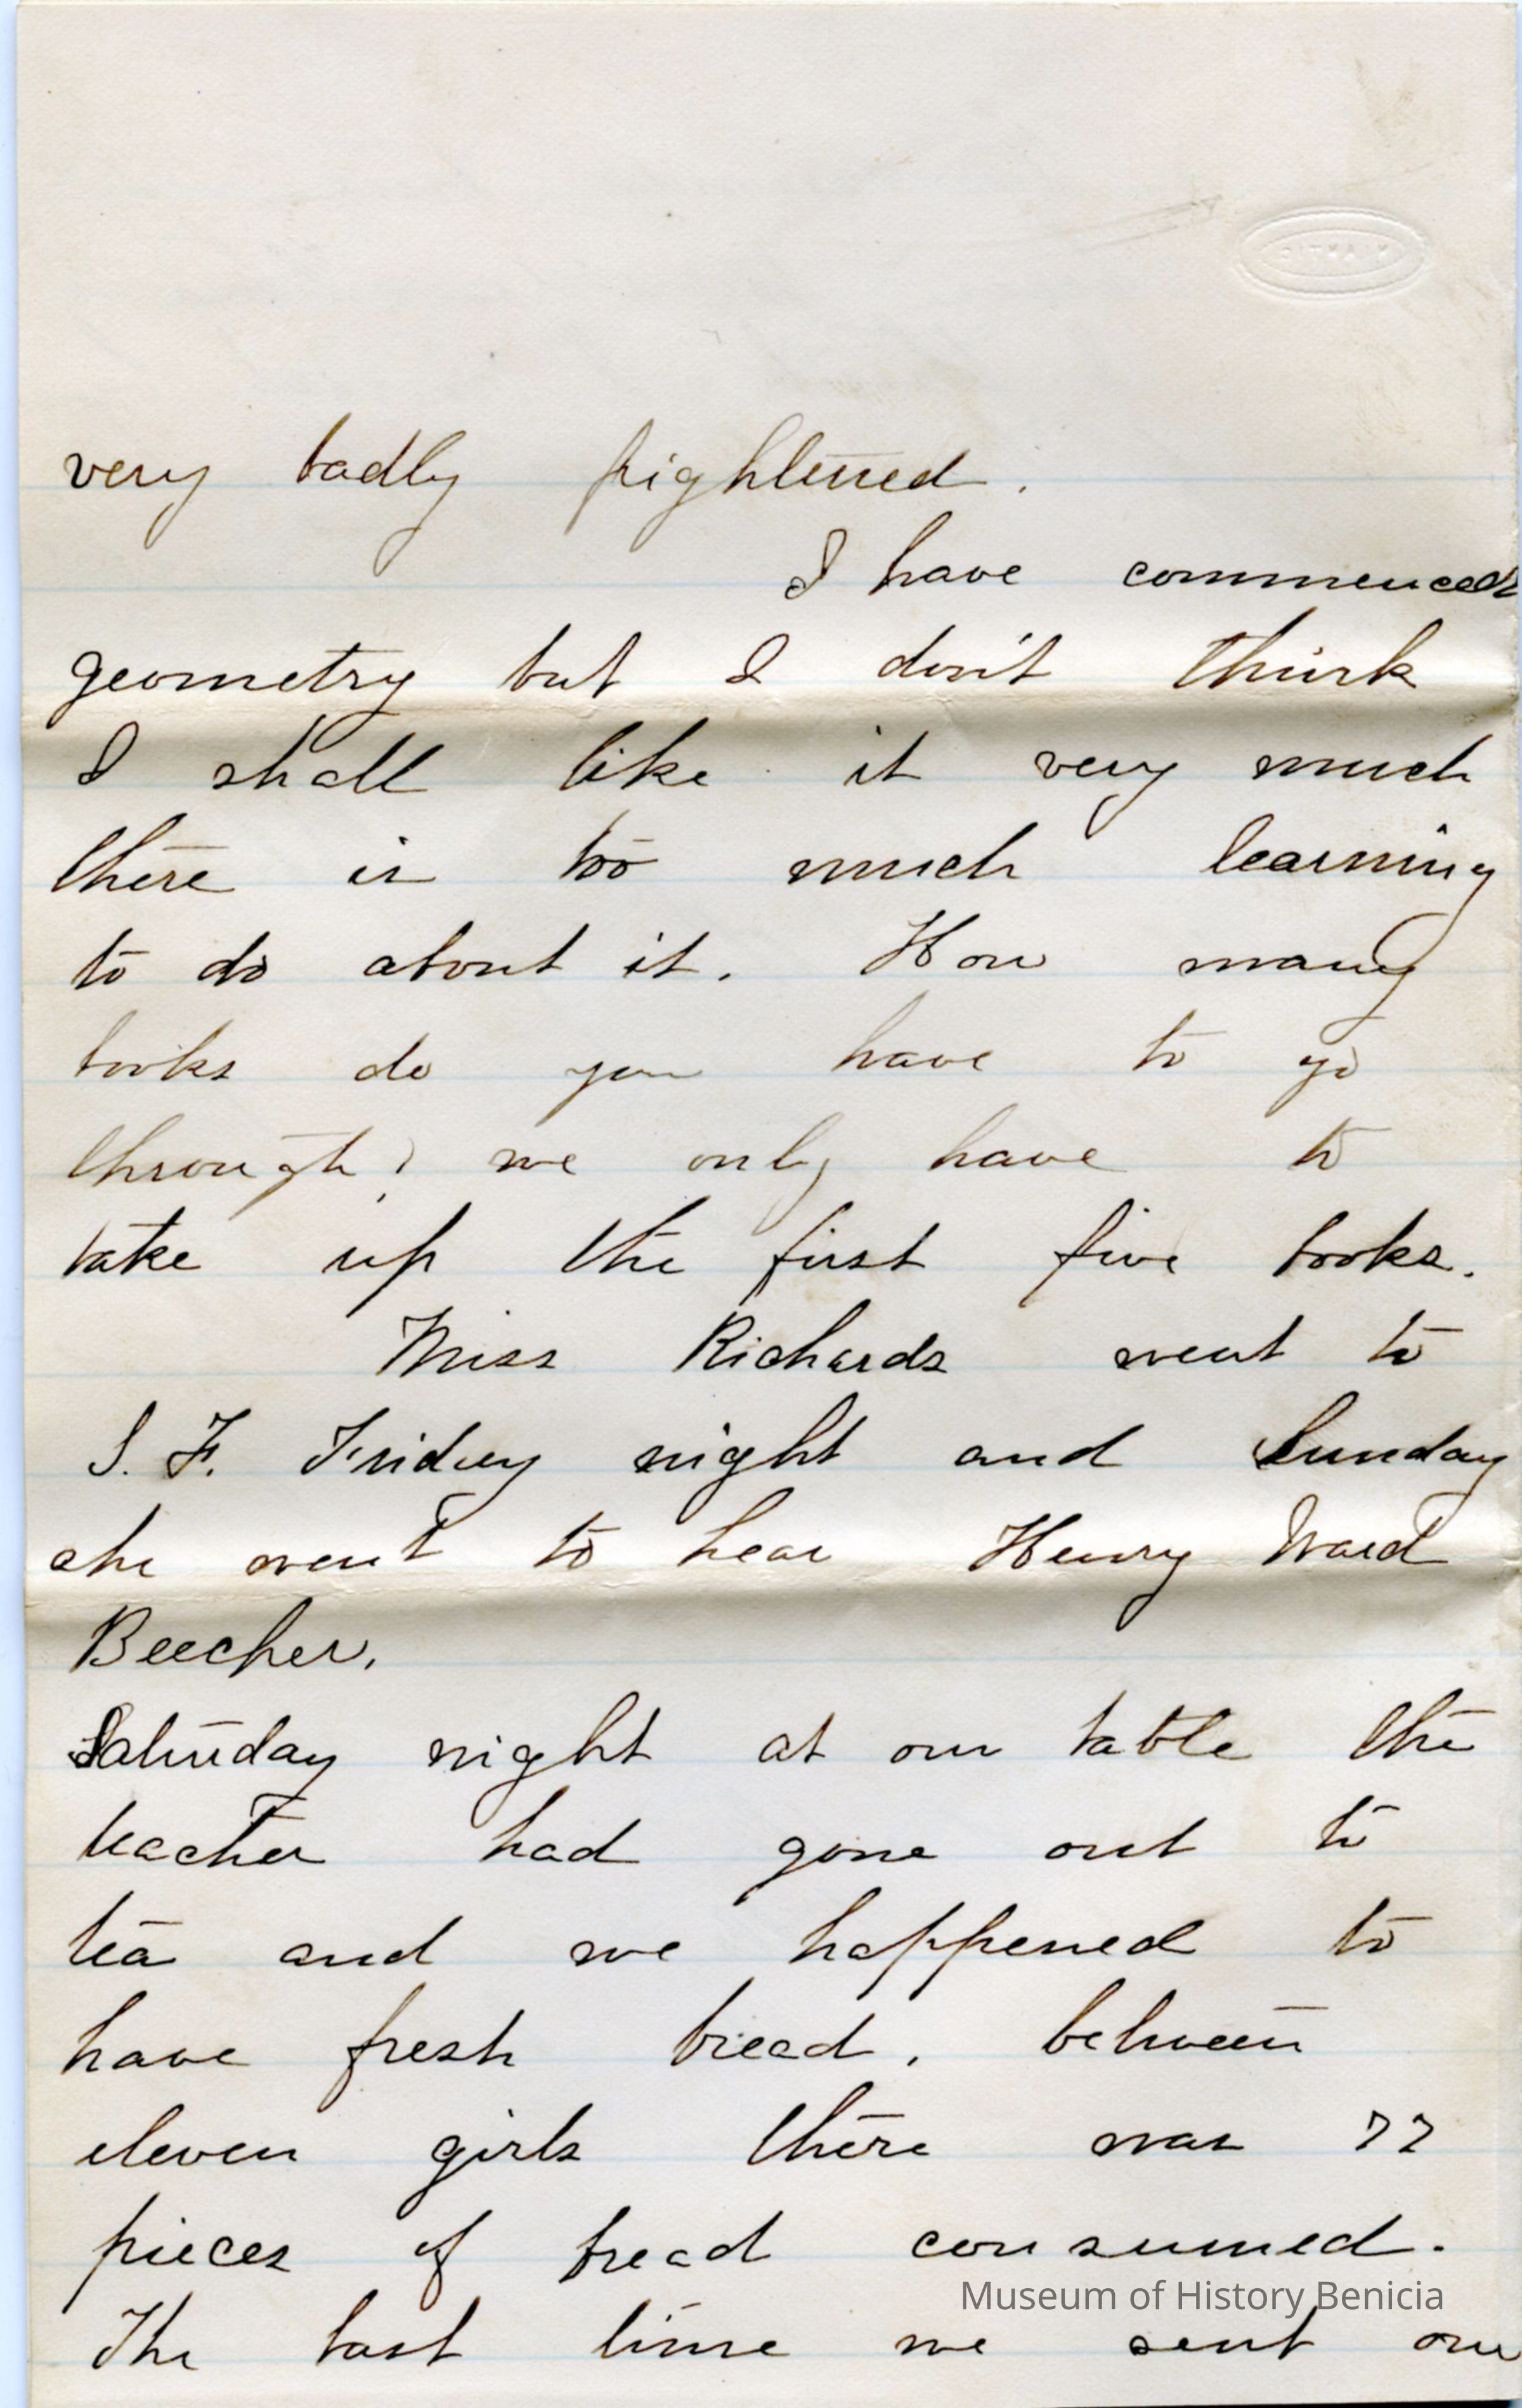 very badly frightened.
I have commenced
geometry but I don't think
I shall like it very much
there is too much learning
to do about it. How many
books do you have to go
through? we only have to
take up the first five books.
Miss Richards went to
S. F. Friday night and Sunday
she went to hear Henry Ward
Beecher.
Saturday night at our table the
teacher had gone out to
tea and we happened to
have fresh bread. between
eleven girls there was 77
pieces of bread consumed.
The last time we sent our
Museum of History Benicia